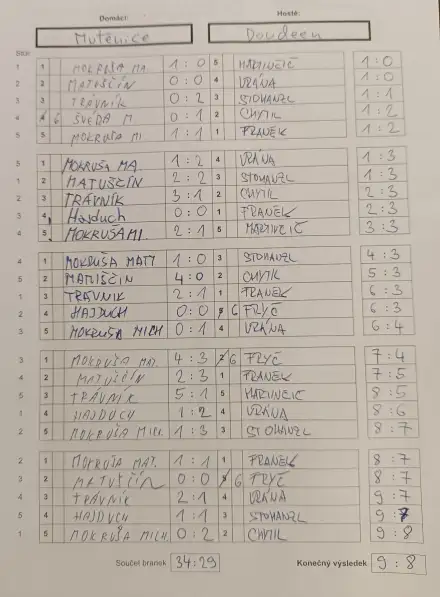 Domácí: Hosté:
Mutěnice Doudeen
Stůl:
1 1 MOKRUŠA MA. 1:0 5 MARTINEIC 1:0
2 2 MATUŠČÍN 0:0 4 VRÁNA 1:0
3 3 TRÁVNÍK 0:2 3 STOHANZL 1:1
4 6 ŠVEDA M 0:1 2 CHYTIL 1:2
5 5 MOKRUŠA MI 1:1 1 FRANEK 1:2
5 1 MOKRUŠA MA. 1:2 4 VRÁNA 1:3
1 2 MATUŠČÍN 2:2 3 STOHANZL 1:3
2 3 TRÁVNÍK 3:1 2 CHYTIL 2:3
3 4 Hajduch 0:0 1 FRANEK 2:3
4 5 MOKRUŠA MI. 2:1 5 MARTINEIC 3:3
4 1 MOKRUŠA MATT 1:0 3 STOHANZL 4:3
5 2 MATUŠČIN 4:0 2 CHYTIL 5:3
1 3 TRÁVNIK 2:1 1 FRANEK 6:3
2 4 HAJDUCH 0:0 6 FRYČ 6:3
3 5 MOKRUŠA MICH 0:1 4 VRÁNA 6:4
3 1 MOKRUŠA MAT. 4:3 6 FRYČ 7:4
4 2 MATUŠČÍN 2:3 1 FRANEK 7:5
5 3 TRÁVNÍK 5:1 5 MARTINEIC 8:5
1 4 HAJDUCH 1:2 4 VRÁNA 8:6
2 5 MOKRUŠA 1:3 3 STOHANZL 8:7
2 1 MOKRUŠA MAT. 1:1 1 FRANEK 8:7
3 2 MATUŠČÍN 0:0 6 FRYČ 8:7
4 3 TRÁVNÍK 2:1 4 VRÁNA 9:7
5 4 HAJDUCH 1:1 3 STOHANZL 9:7
1 5 MOKRUŠA MICH. 0:2 2 CHYTIL 9:8
Součet branek 34:29 Konečný výsledek 9:8